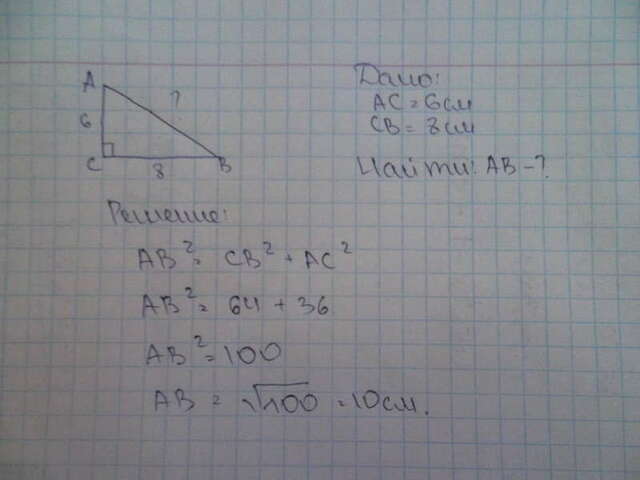 A
?
6
C
8
B
Дано:
AC = 6 см
CB = 8 см
Найти: AB - ?
Решение:
AB² = CB² + AC²
AB² = 64 + 36
AB² = 100
AB = √100 = 10 см.